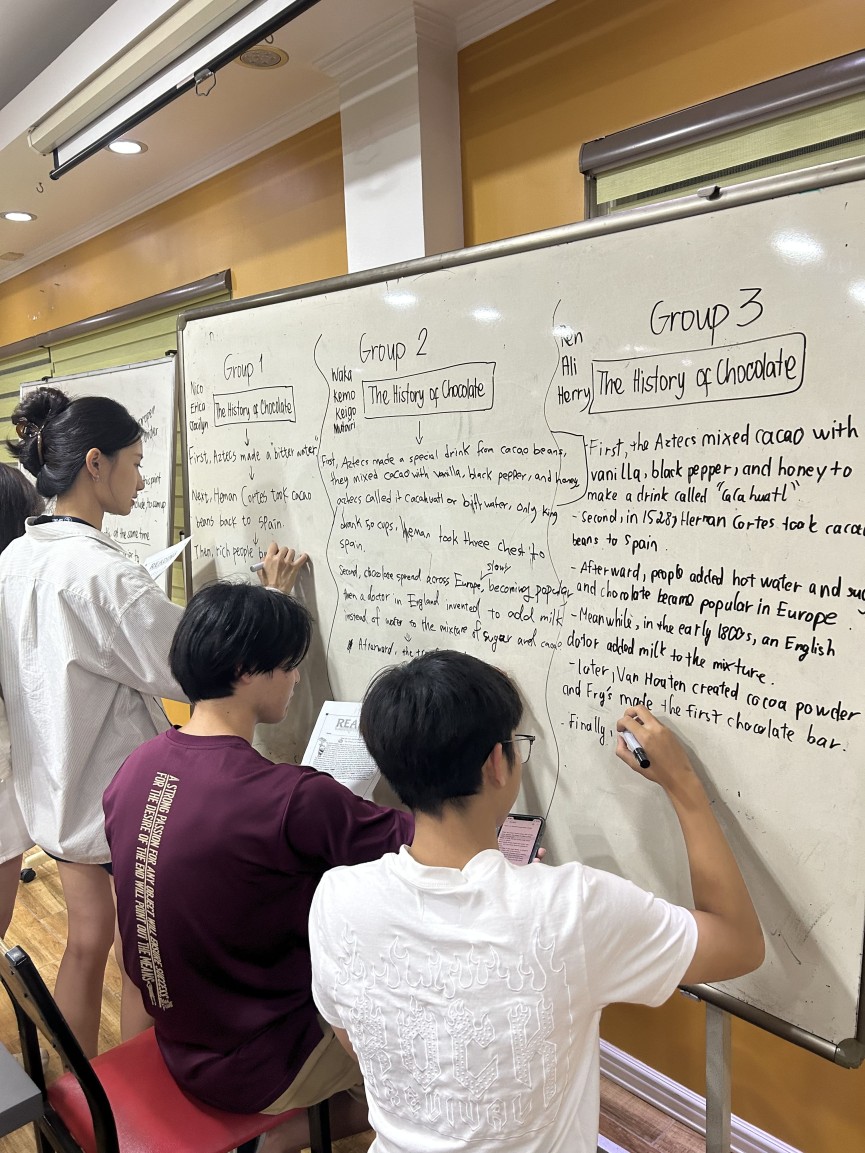 Group 1
Nico
Erica
The History of Chocolate
First, Aztecs made a "bitter water"
Next, Hernan Cortes took cacao
beans back to Spain.
Then, rich people
Group 2
Waka
Kemo
Keigo
The History of Chocolate
First, Aztecs made a special drink from cacao beans,
they mixed cacao with vanilla, black pepper, and honey
aztecs called it cacahuatl or bitterwater, only king
drank 50 cups, Heman took three chest to
Spain.
slowly
Second, chocolate spread across Europe, becoming popular
then a doctor in England invented to add milk
instead of water to the mixture of sugar and cacao
Afterward, the
Group 3
Ren
Ali
Herry
The History of Chocolate
First, the Aztecs mixed cacao with
vanilla, black pepper, and honey to
make a drink called "cacahuatl"
- Second, in 1528, Hernan Cortes took cacao
beans to Spain.
- Afterward, people added hot water and
and chocolate became popular in Europe.
- Meanwhile, in the early 1800s, an English
dotor added milk to the mixture.
- later, Van Houten created cocoa powder
and Fry's made the first chocolate bar.
- Finally,
at the same time
A STRONG PASSION FOR ANY OBJECT WILL ENSURE
FOR THE DESIRE OF THE END WILL POINT OUT THE MEANS